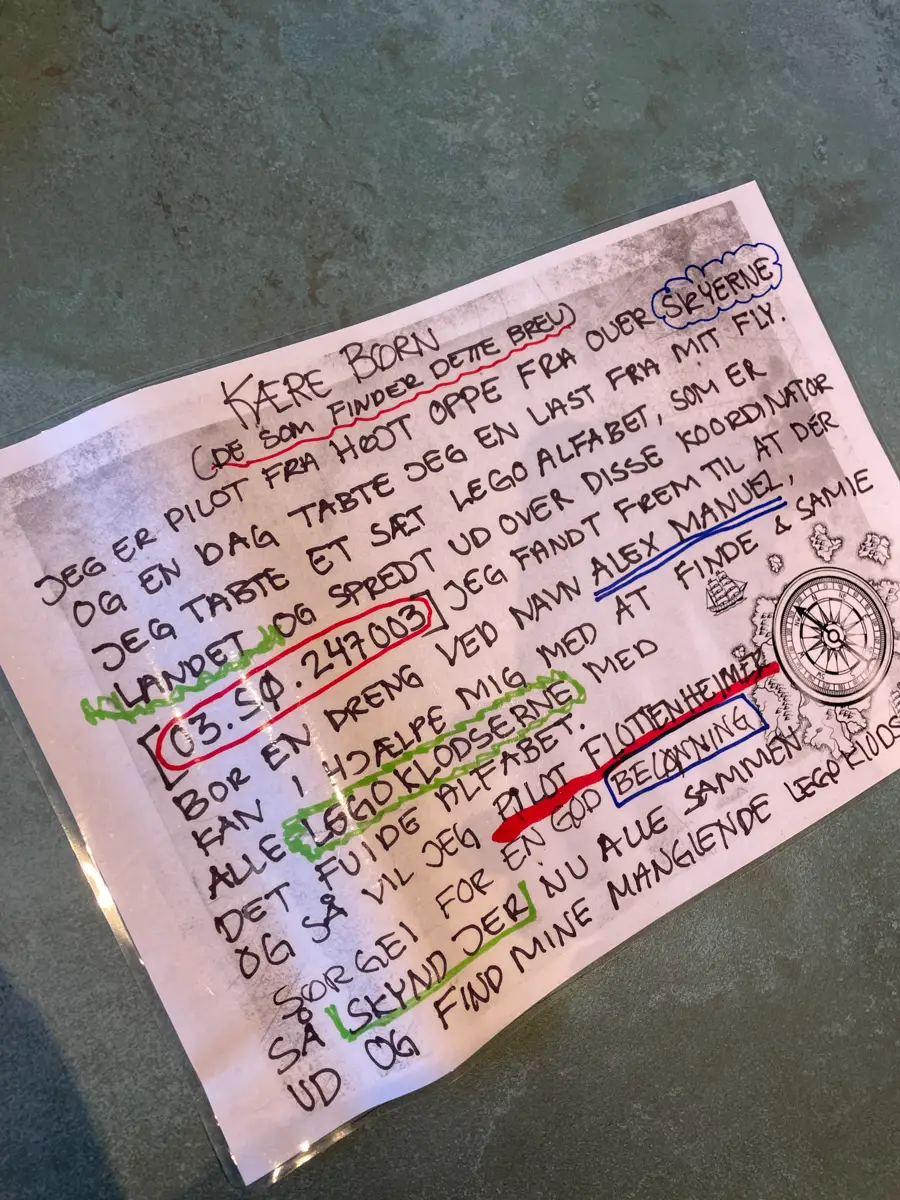 KÆRE BØRN
(DE SOM FINDER DETTE BREV)
JEG ER PILOT FRA HØJT OPPE FRA OVER SKYERNE
OG EN DAG TABTE JEG EN LAST FRA MIT FLY.
JEG TABTE ET SÆT LEGO ALFABET, SOM ER
LANDET OG SPREDT UD OVER DISSE KOORDINATOR
[03.5Ø.247003] JEG FANDT FREM TIL AT DER
BOR EN DRENG VED NAVN ALEX MANUEL,
KAN I HJÆLPE MIG MED AT FINDE & SAMLE
ALLE LEGOKLODSERNE MED
DET FULDE ALFABET.
OG SÅ VIL JEG PILOT FLOTTENHEIMER
SØRGE FOR EN GOD BELØNNING
SÅ SKYND JER NU ALLE SAMMEN
UD OG FIND MINE MANGLENDE LEGO KLODS